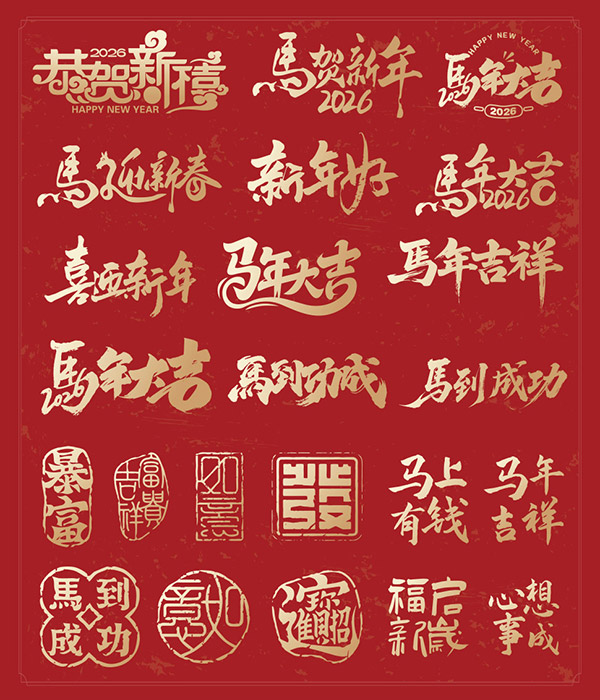 2026
恭贺新禧
HAPPY NEW YEAR
馬贺新年
2026
HAPPY NEW YEAR
馬年大吉
2026
2026
馬迎新春
新年好
馬年大吉
2026
喜迎新年
马年大吉
馬年吉祥
馬年大吉
2026
馬到功成
馬到成功
暴富
富貴
吉祥
如意
發
马上
有钱
马年
吉祥
馬到
成功
如意
招財進寶
福启
新歲
心想
事成